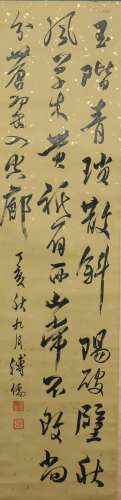 玉階青瑣散斜陽破壁秋
風草木黃祇有西山常不改尚
分蒼翠入空廊
丁亥秋九月溥儒